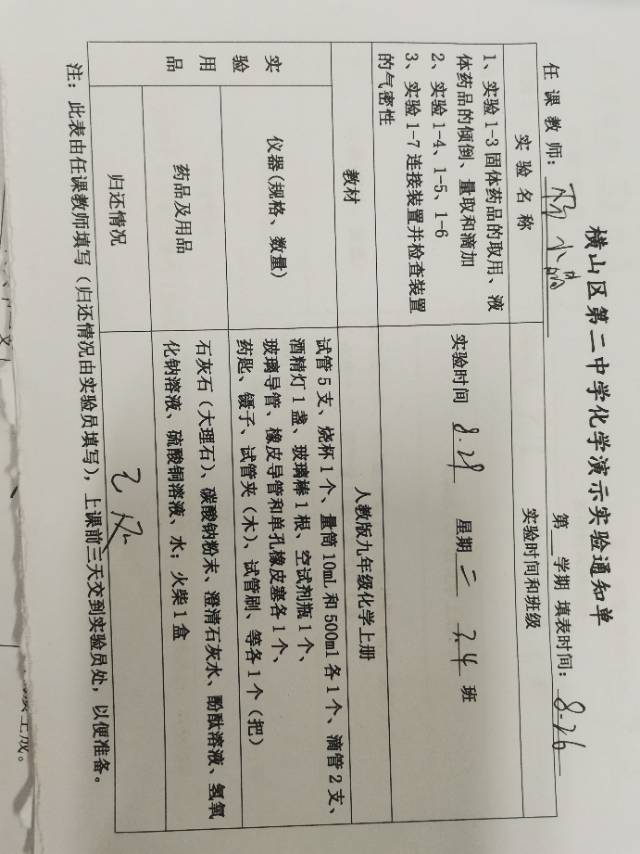 横山区第二中学化学演示实验通知单
任 课 教 师：
第 学期 填表时间：8.26
实 验 名 称
实验时间和班级
1、实验 1-3 固体药品的取用、液
体药品的倾倒、量取和滴加
2、实验 1-4、1-5、1-6
3、实验 1-7 连接装置并检查装置
的气密性
实验时间 8.29 星期 二 3.4 班
教材
人教版九年级化学上册
实
验
用
品
仪器(规格、数量)
试管 5 支、烧杯 1 个、量筒 10mL 和 500ml 各 1 个、滴管 2 支、
酒精灯 1 盏、玻璃棒 1 根、空试剂瓶 1 个、
玻璃导管、橡皮导管和单孔橡皮塞各 1 个、
药匙、镊子、试管夹（木）、试管刷、等各 1 个（把）
药品及用品
石灰石（大理石）、碳酸钠粉末、澄清石灰水、酚酞溶液、氢氧
化钠溶液、硫酸铜溶液、水；火柴 1 盒
归还情况
已还
注：此表由任课教师填写（归还情况由实验员填写），上课前三天交到实验员处，以便准备。